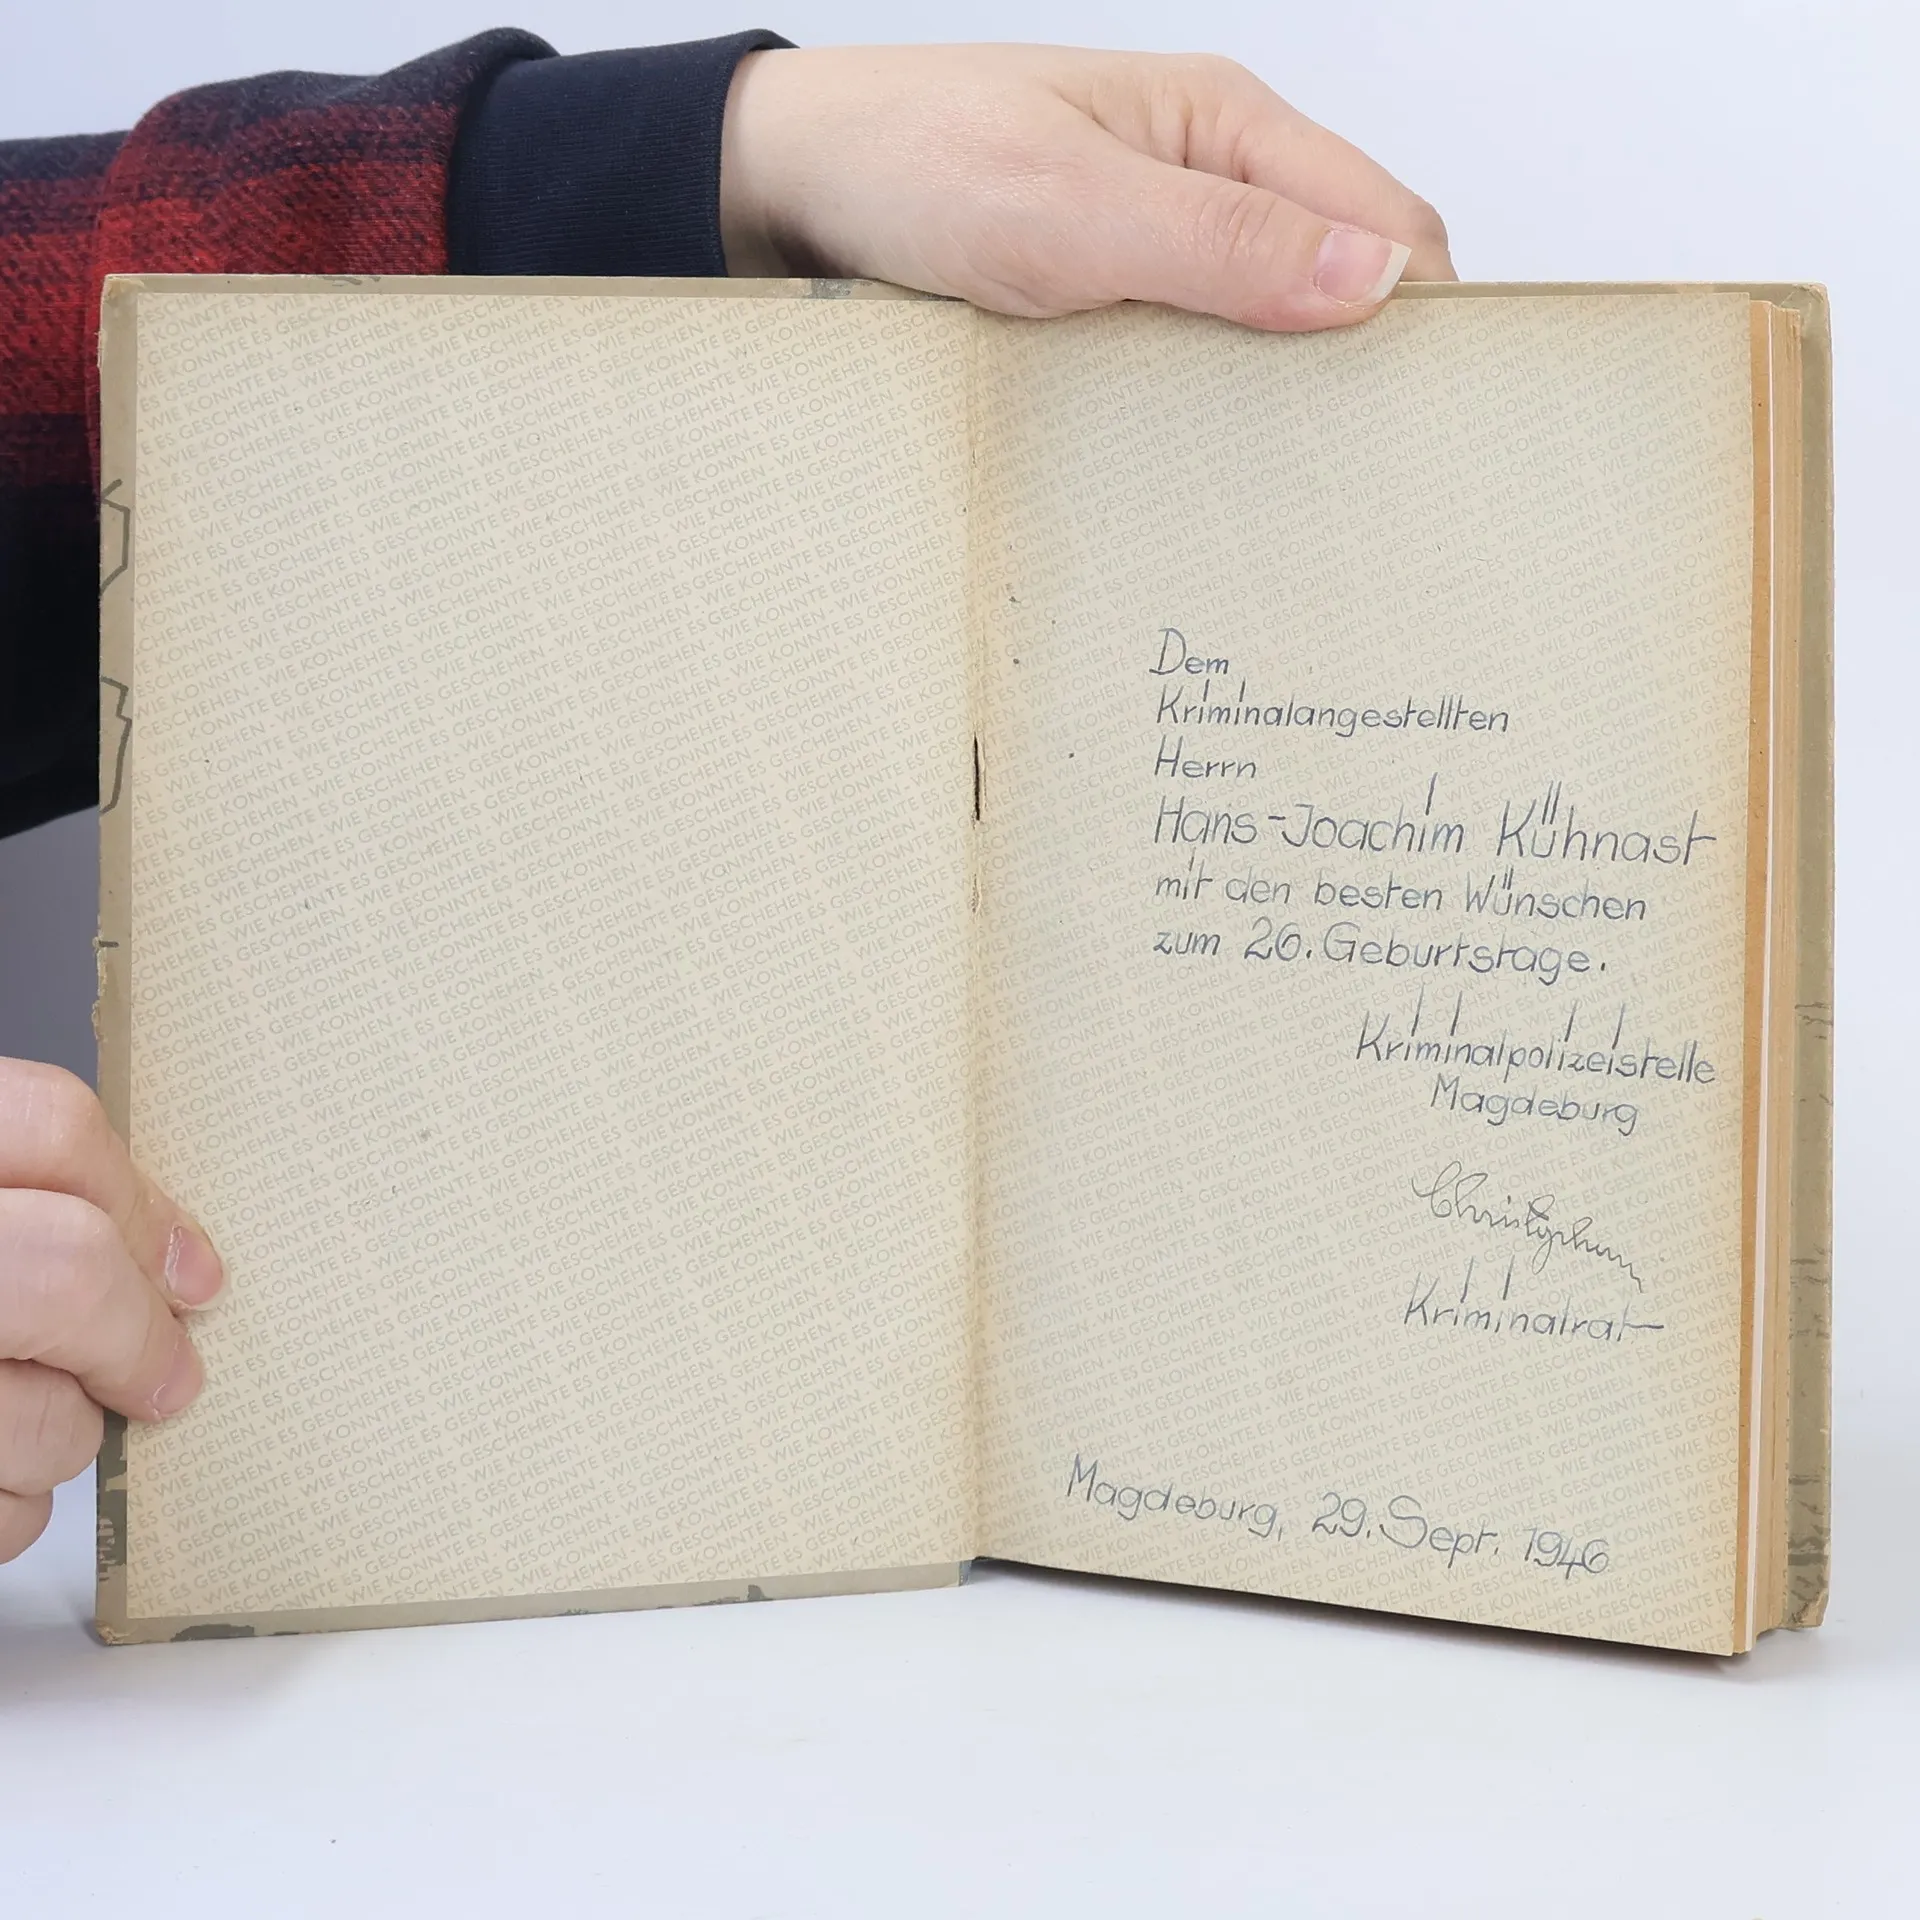 WIE KONNTE ES GESCHEHEN - WIE KONNTE ES GESCHEHEN
Dem
Kriminalangestellten
Herrn
Hans-Joachim Kühnast
mit den besten Wünschen
zum 26. Geburtstage.
Kriminalpolizeistelle
Magdeburg
Kriminalrat
Magdeburg, 29. Sept. 1946